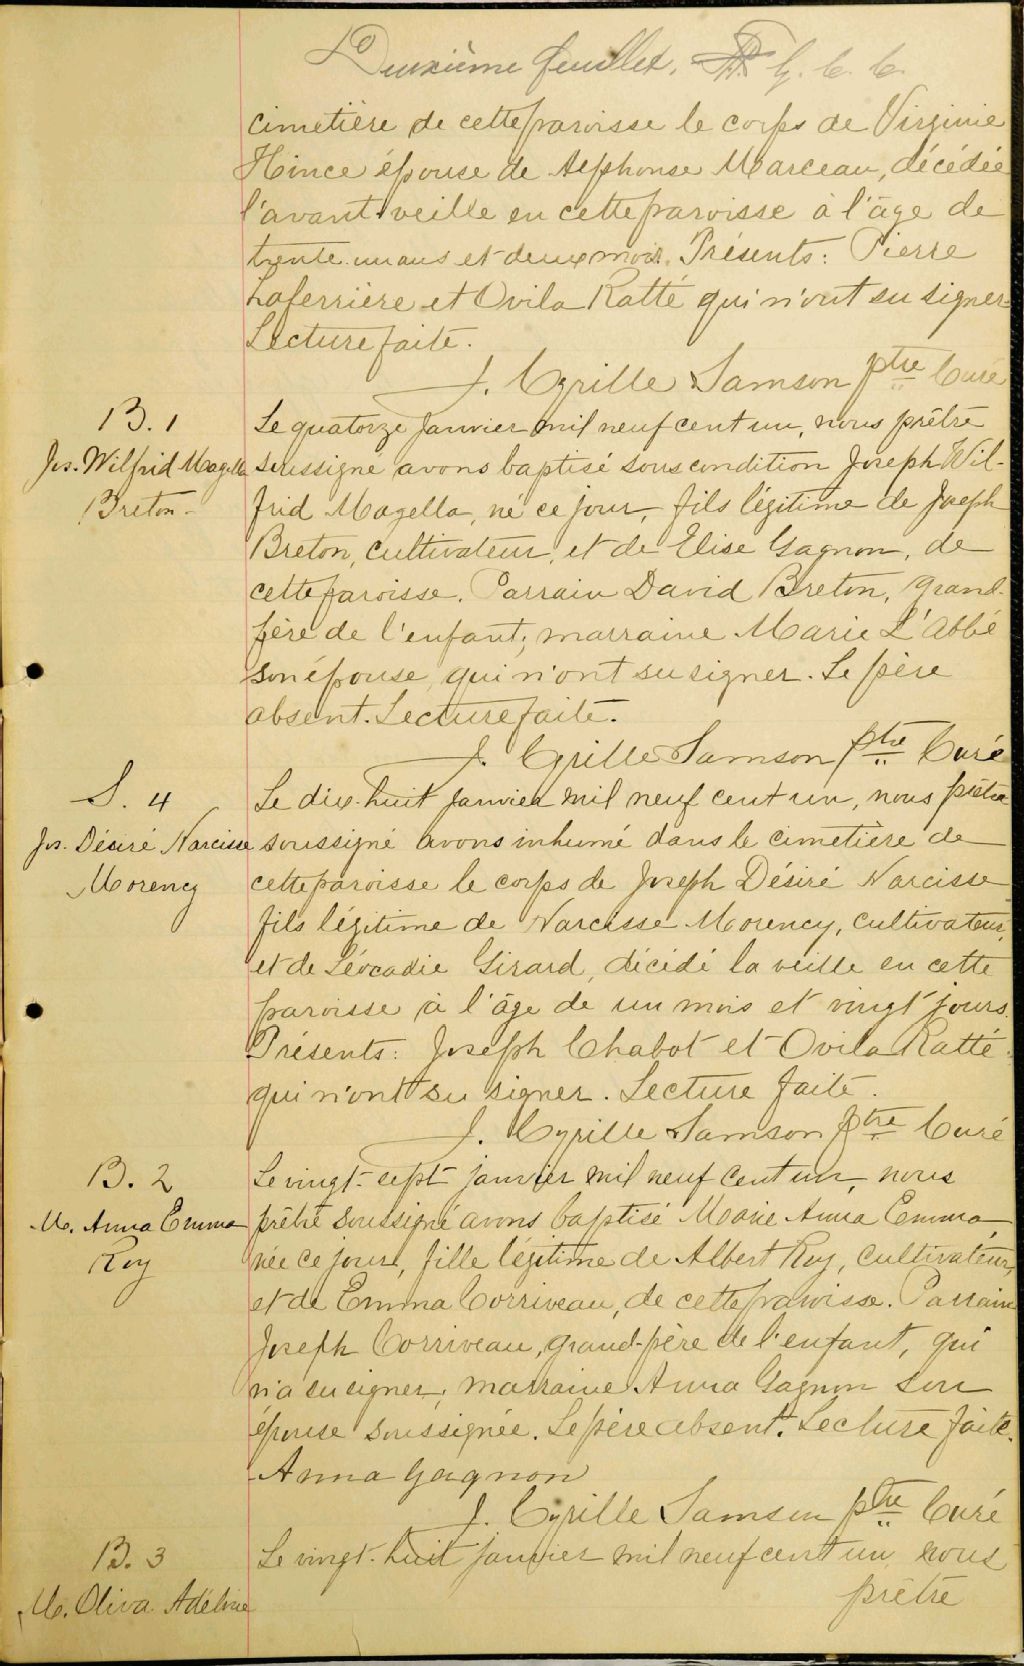 Deuxième feuillet. G. C. C.
cimetière de cette paroisse le corps de Virginie
Hince épouse de Alphonse Marceau, décédée
l'avant-veille en cette paroisse à l'âge de
trente un ans et deux mois. Présents: Pierre
Laferrière et Ovila Ratté qui n'ont su signer
Lecture faite.
J. Cyrille Samson ptre Curé
B. 1
Jos. Wilfrid Magella
Breton
Le quatorze janvier mil neuf cent un, nous prêtre
soussigné avons baptisé sous condition Joseph Wil-
frid Magella, né ce jour, fils légitime de Joseph
Breton, cultivateur, et de Elise Gagnon, de
cette paroisse. Parrain David Breton, grand-
père de l'enfant; marraine Marie L'Abbé
son épouse, qui n'ont su signer. Le père
absent. Lecture faite.
J. Cyrille Samson ptre Curé
S. 4
Jos. Désiré Narcisse
Morency
Le dix-huit janvier mil neuf cent un, nous prêtre
soussigné avons inhumé dans le cimetière de
cette paroisse le corps de Joseph Désiré Narcisse
fils légitime de Narcisse Morency, cultivateur,
et de Léocadie Girard, décédé la veille en cette
paroisse à l'âge de un mois et vingt jours.
Présents: Joseph Chabot et Ovila Ratté
qui n'ont su signer. Lecture faite.
J. Cyrille Samson ptre Curé
B. 2
M. Anna Emma
Roy
Le vingt-sept janvier mil neuf cent un, nous
prêtre soussigné avons baptisé Marie Anna Emma,
née ce jour, fille légitime de Albert Roy, cultivateur,
et de Emma Corriveau, de cette paroisse. Parrain
Joseph Corriveau, grand-père de l'enfant, qui
n'a su signer; marraine Anna Gagnon son
épouse soussignée. Le père absent. Lecture faite.
Anna Gagnon
J. Cyrille Samson ptre Curé
B. 3
M. Oliva Adéline
Le vingt-huit janvier mil neuf cent un nous
prêtre